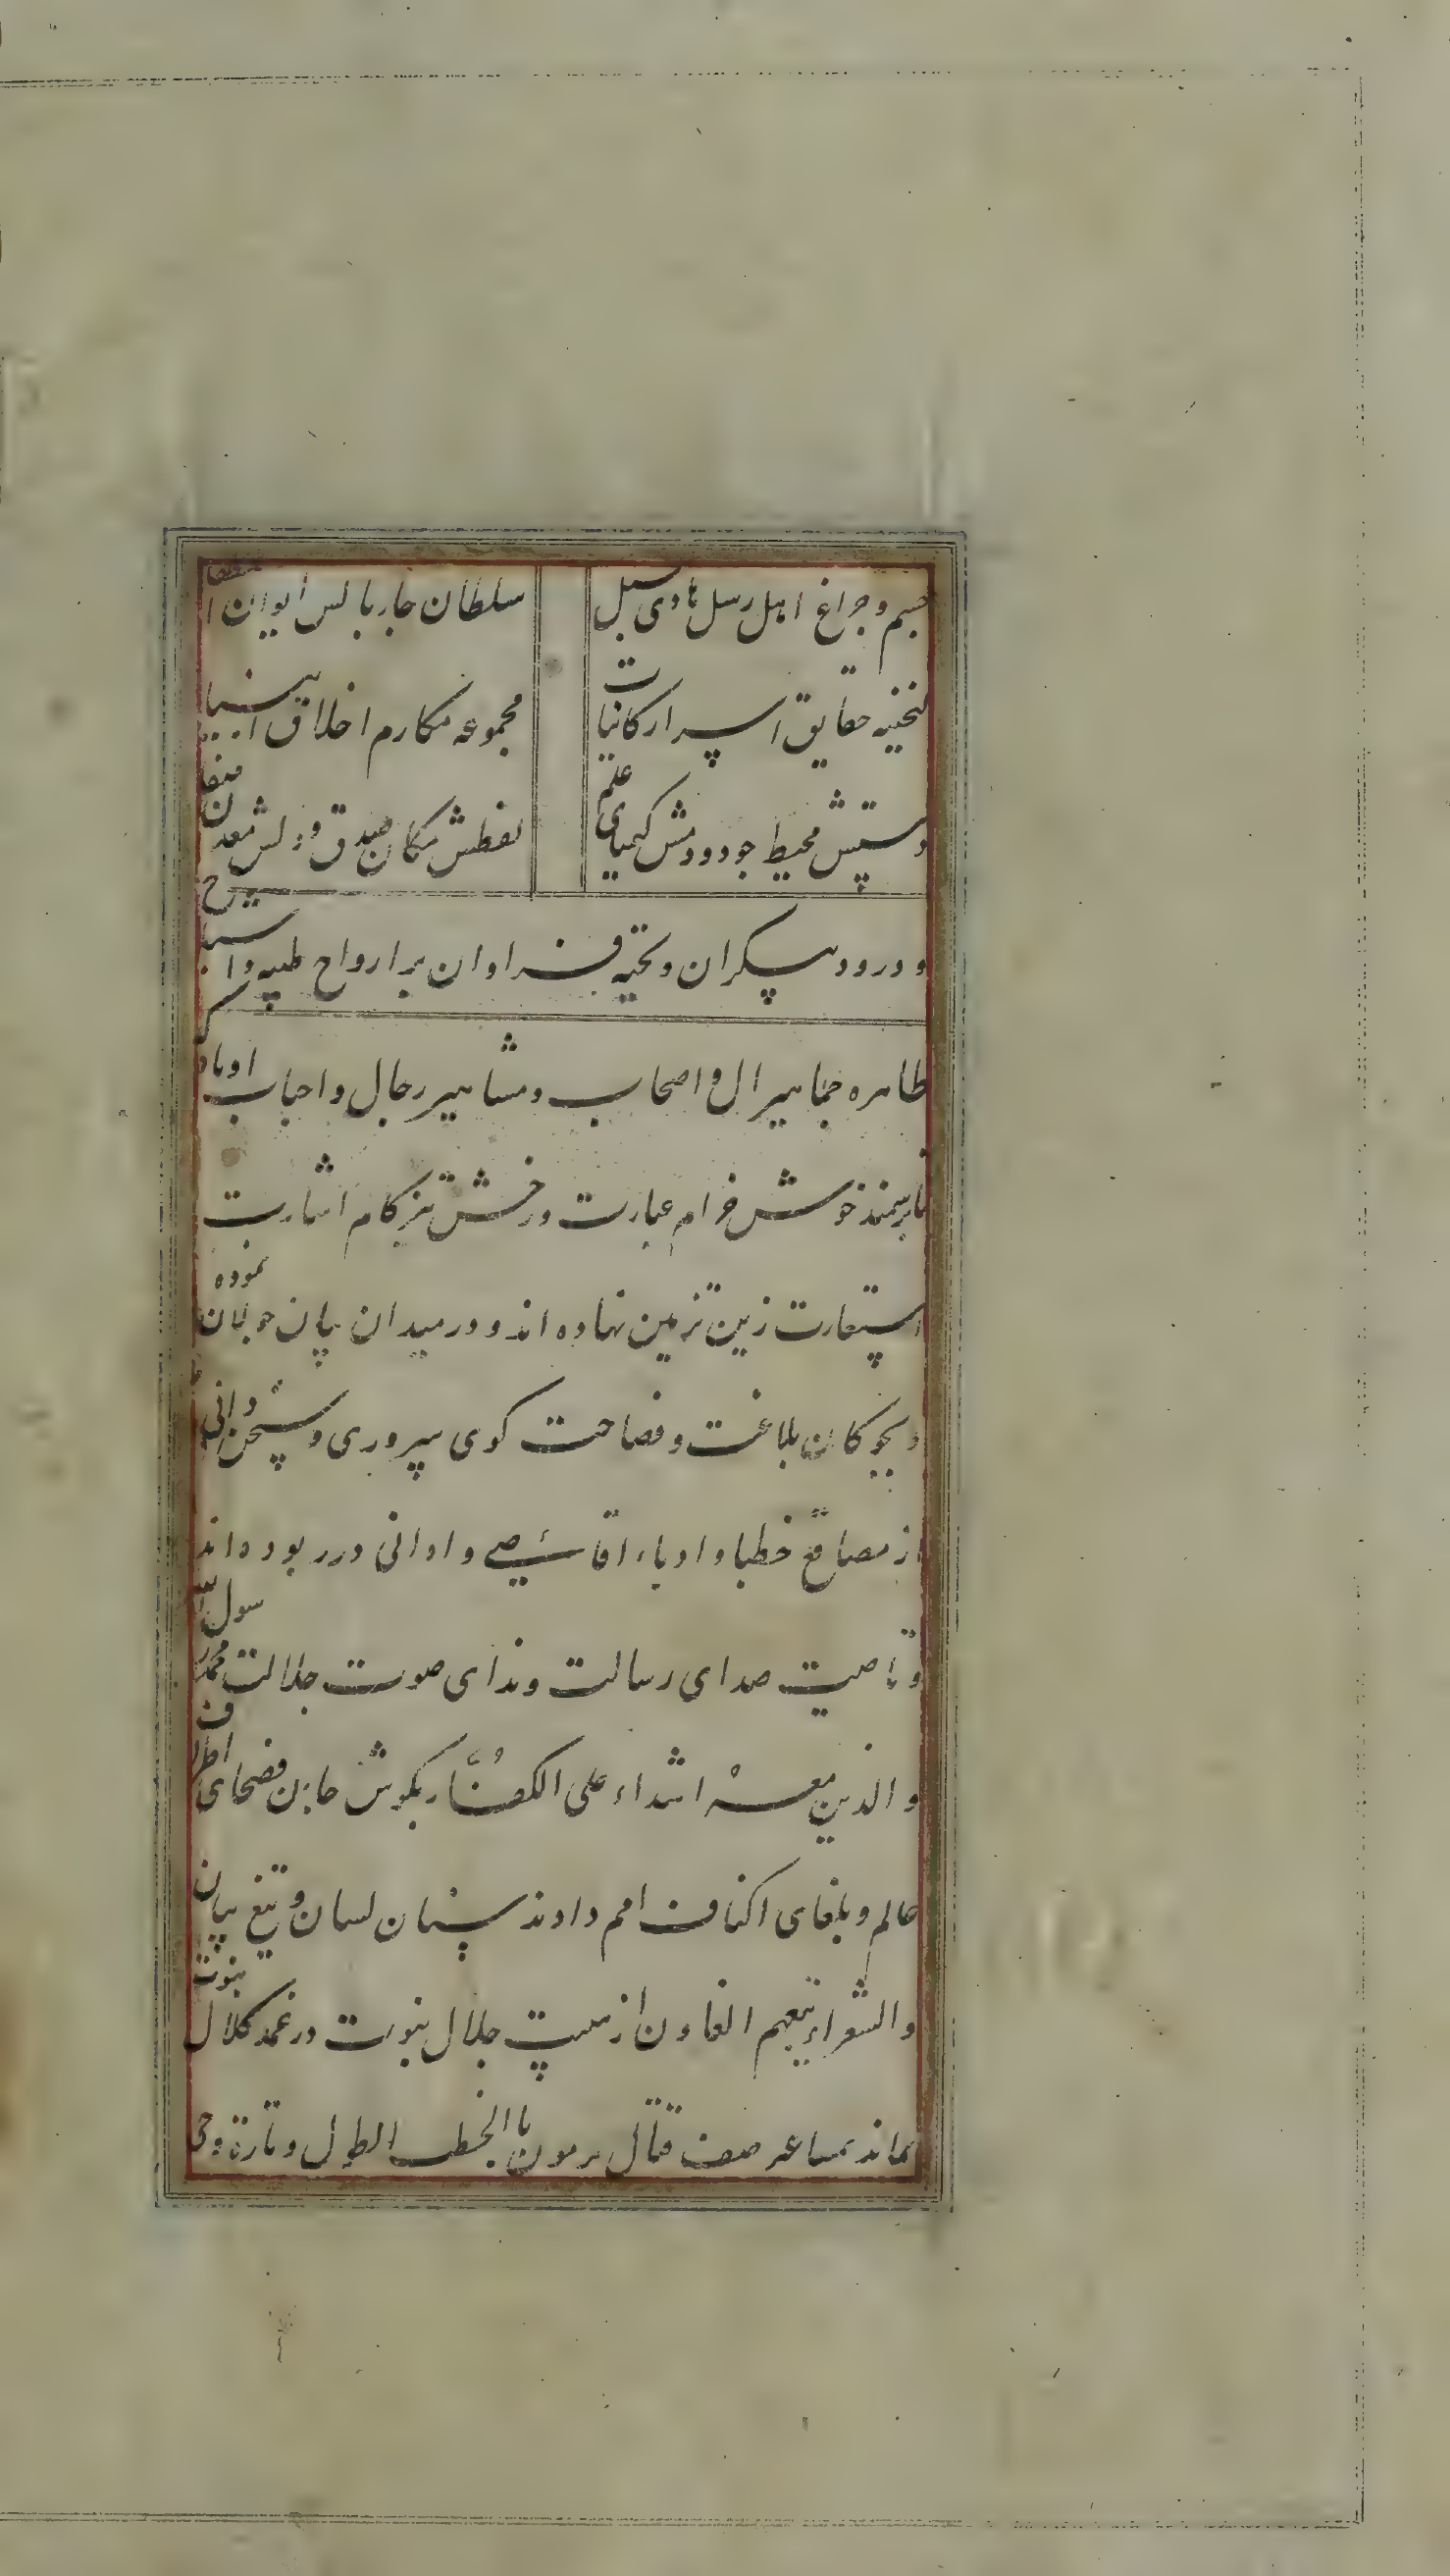 جسم و جراغ اهل رسل هادی سبل
سلطان جاربالس ایوان اصطفا
کنجینه حقایق اسرار کاینات
مجموعه مکارم اخلاق انبیا
دستش محیط جود و دمش کیمیای علم
لفظش مکان صدق و دلش معدن صفا
و درود بیکران و تحیه فراوان بر ارواح طیبه و اشباح
طاهره جماهیر ال و اصحاب و مشاهیر رجال و احباب او باد که
تا بر سمند خوش خرام عبارت و رخش تیزکام اشارت
استعارت زین تزمین نهاده اند و در میدان بیان جولان نموده
و بجوکان بلاغت و فصاحت کوی سروری و سخن دانی
از مصاقع خطبا و ادباء اقاصی و ادانی در ربوده اند
و تا صیت صدای رسالت و ندای صوت جلالت محمد رسول الله
و الذین معه اشداء علی الکفار بکوش جان فصحای اطراف
عالم و بلغای اکناف امم دادند سنان لسان و تیغ بیان
والشعراء یتبعهم الغاون از هیبت جلال نبوت در غمد کلال
بماند بمساعر صف قتال یرمون بالخطب الطول و تارة وحی